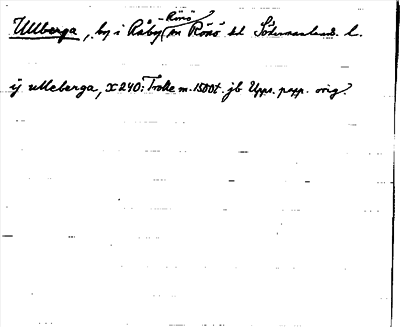 Ulleberga, by i Råby-Rönö sn Rönö hd Södermanlands l.
ij ulleberga, X 240: Trolle m. 1500t. jb Upps. papp. orig.